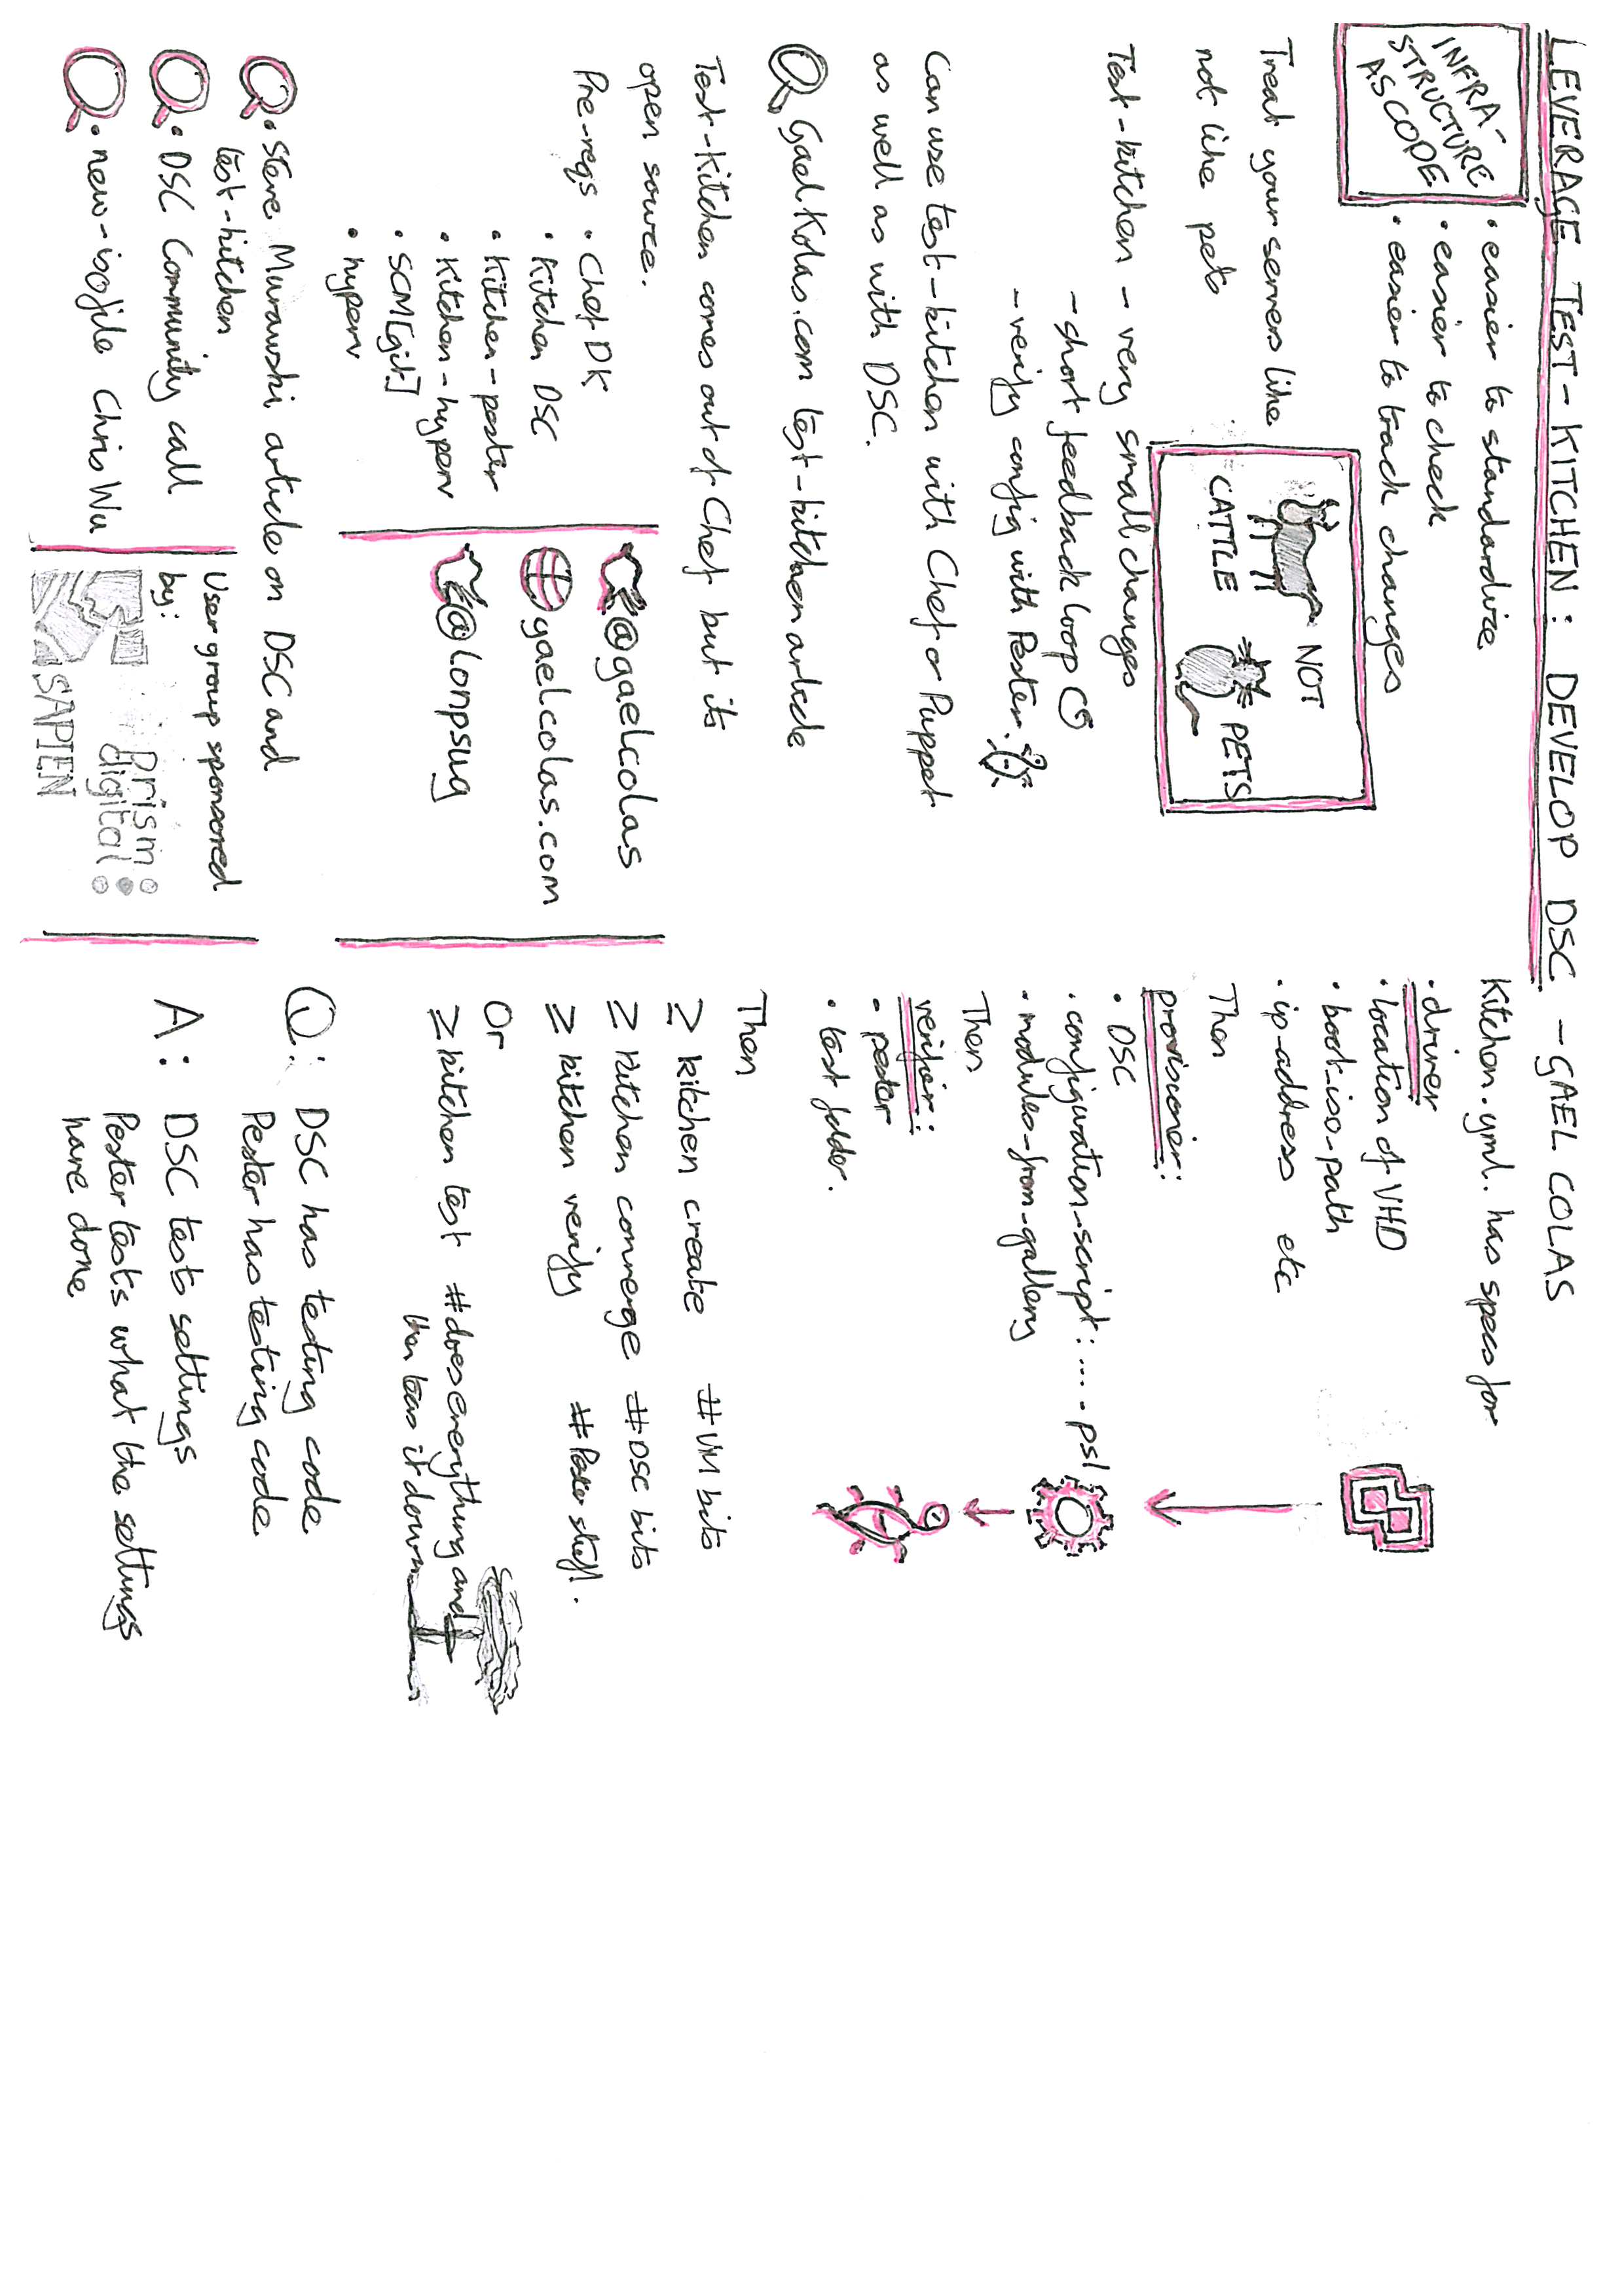 LEVERAGE TEST-KITCHEN: DEVELOP DSC - GAEL COLAS
INFRA-
STRUCTURE
AS CODE
• easier to standardize
• easier to check
• easier to track changes
Treat your servers like
not like pets
NOT
CATTLE
PETS
Test-kitchen - very small changes
- short feedback loop
- verify config with Pester.
Can use test-kitchen with Chef or Puppet
as well as with DSC.
Gael Kolas.com test-kitchen article
Test-Kitchen comes out of Chef but its
open source.
Pre-reqs • Chef DK
• Kitchen DSC
• Kitchen-pester
• Kitchen-hyperv
• SCM [git]
• hyperv
@gaelcolas
gaelcolas.com
@lonpsug
• Steve Murawski article on DSC and
test-kitchen
• DSC Community call
• new-isofile Chris Wu
User group sponsored
by:
prism
digital
SAPIEN
Kitchen.yml. has specs for
• driver
• location of VHD
• boot-iso-path
• ip-address etc
Then
provisioner:
• DSC
• configuration-script: .... .ps1
• modules-from-gallery
Then
verifier:
• pester
• test folder.
Then
≥ kitchen create # VM bits
≥ kitchen converge # DSC bits
≥ kitchen verify # Pester stuff.
Or
≥ kitchen test # does everything and
then tears it down
Q: DSC has testing code
Pester has testing code
A: DSC tests settings
Pester tests what the settings
have done